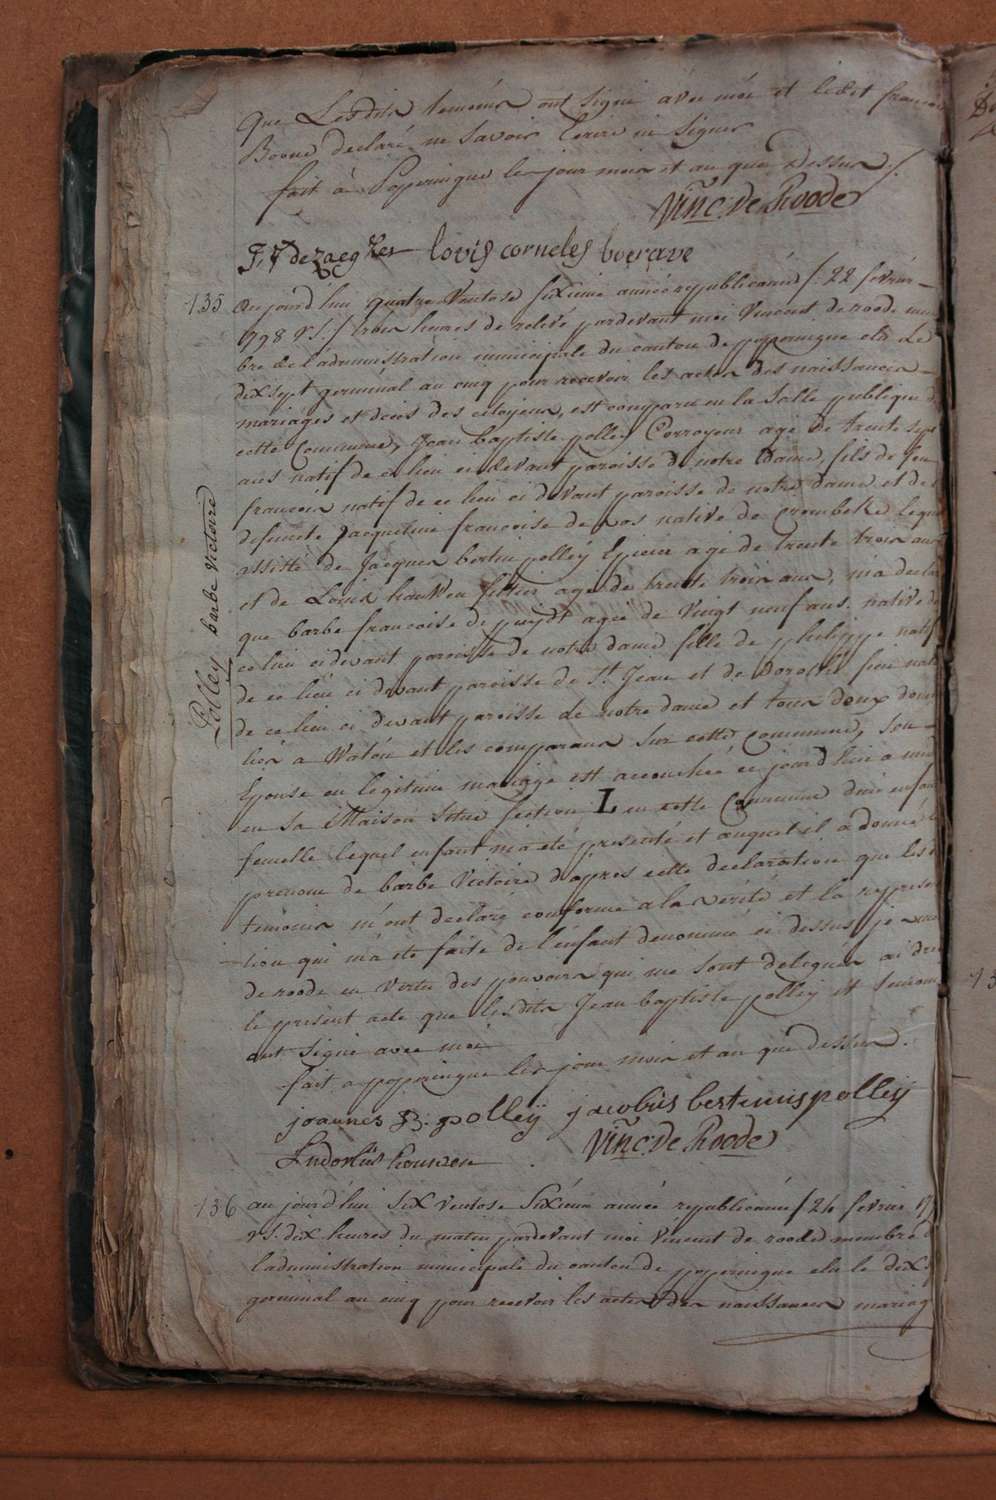 que Lesdits temoins ont signé avec moi et ledit francois
Boone declaré ne savoir Ecrire ni signer
fait à Poperingue les jour mois et an que dessus /.
Vinc. De Roode
lovis corneles boerave
135 aujourd'hui quatre Ventose sixieme année republicaine /: 22 fevrier
1798 v.s. :/ trois heures de relevé pardevant moi Vincent de roode mem
bre de l'administration municipale du canton de poperingue elu Le
dix sept germinal an cinq pour recevoir les actes des naissances
mariages et deces des citoyens, est comparu en la Salle publique de
cette Commune, Jean baptiste polley Corroyeur agé de trente sept
ans natif de ce lieu ci devant paroisse de notre Dame, fils de feu
francois natif de ce lieu ci devant paroisse de notre dame et de
defuncte Jacqueline francoise de vos native de Crombeke Lequel
assisté de Jacques bertin polley Epicier agé de trente trois ans
et de Louis houwen agé de trente trois ans, m'a declaré
que barbe francoise de puydt agée de Vingt neuf ans native de
ce lieu ci devant paroisse de notre dame fille de philippe natif
de ce lieu ci devant paroisse de St. Jean et de native
de ce lieu ci devant paroisse de notre dame et tous deux domici
liés a Watou et les comparans sur cette Commune, son
Epouse en legitime mariage est accouchée ce jourd'hui a midi
en sa Maison située section L en cette Commune d'un enfant
femelle lequel enfant m'a été presenté et auquel il a donné le
prenom de barbe Victoire d'apres cette declaration que les
temoins m'ont declaré conforme a la verité et la represen
tion qui m'a été faite de l'enfant denommé ci dessus, je vincent
de roode en vertu des pouvoirs qui me sont delegués ai dressé
le present acte que lesdits Jean baptiste polley et temoins
ont signé avec moi
fait a poperingue les jour mois et an que dessus.
joannes B. polleÿ jacobüs bertinus polleÿ
houwen Vinc. De Roode
Polley barbe victoire
136 au jourd'hui six ventose sixiéme année republicaine /: 24 fevrier 17
v.s. dix heures du matin pardevant moi Vincent de roode membre de
l'administration municipale du canton de poperingue elu le dix s
germinal an cinq pour recevoir les actes des naissances mariag